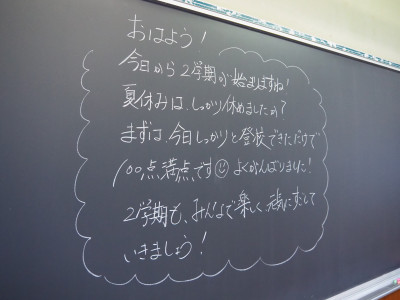 おはよう!
今日から2学期が始まりますね!
夏休みは、しっかり休めましたか?
まずは、今日しっかりと登校できただけで
100点満点です☺ よくがんばりました!
2学期も、みんなで楽しく元気にすごして
いきましょう!